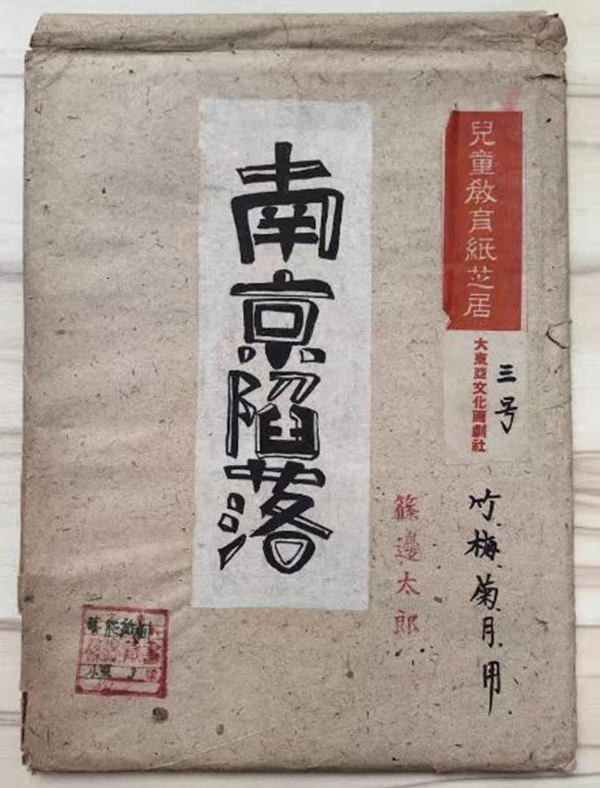 兒童教育紙芝居
大東亞文化画劇社
三号
竹.梅.菊.月.用
南京陥落
篠邊太郎